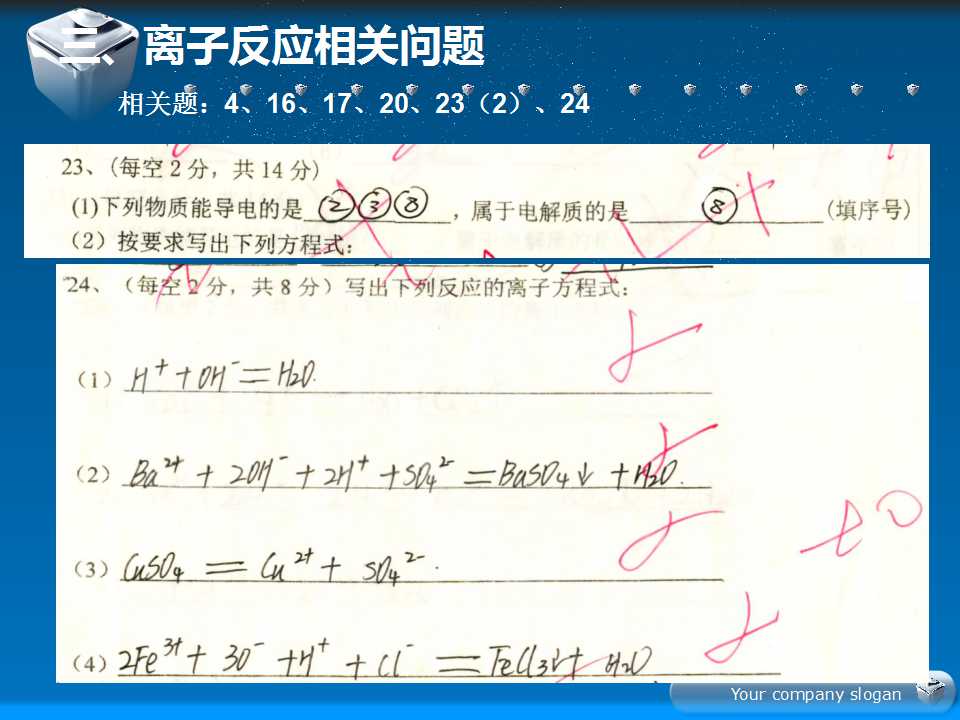 三、离子反应相关问题
相关题：4、16、17、20、23（2）、24
23、(每空 2 分，共 14 分)
(1)下列物质能导电的是 ②③⑧ ，属于电解质的是 ⑧ (填序号)
（2）按要求写出下列方程式：
24、（每空 2 分，共 8 分）写出下列反应的离子方程式：
（1） H⁺ + OH⁻ = H₂O.
（2） Ba²⁺ + 2OH⁻ + 2H⁺ + SO₄²⁻ = BaSO₄↓ + H₂O.
（3） CuSO₄ = Cu²⁺ + SO₄²⁻.
（4） 2Fe³⁺ + 3O⁻ + H⁺ + Cl⁻ = FeCl₃↓ + H₂O
Your company slogan